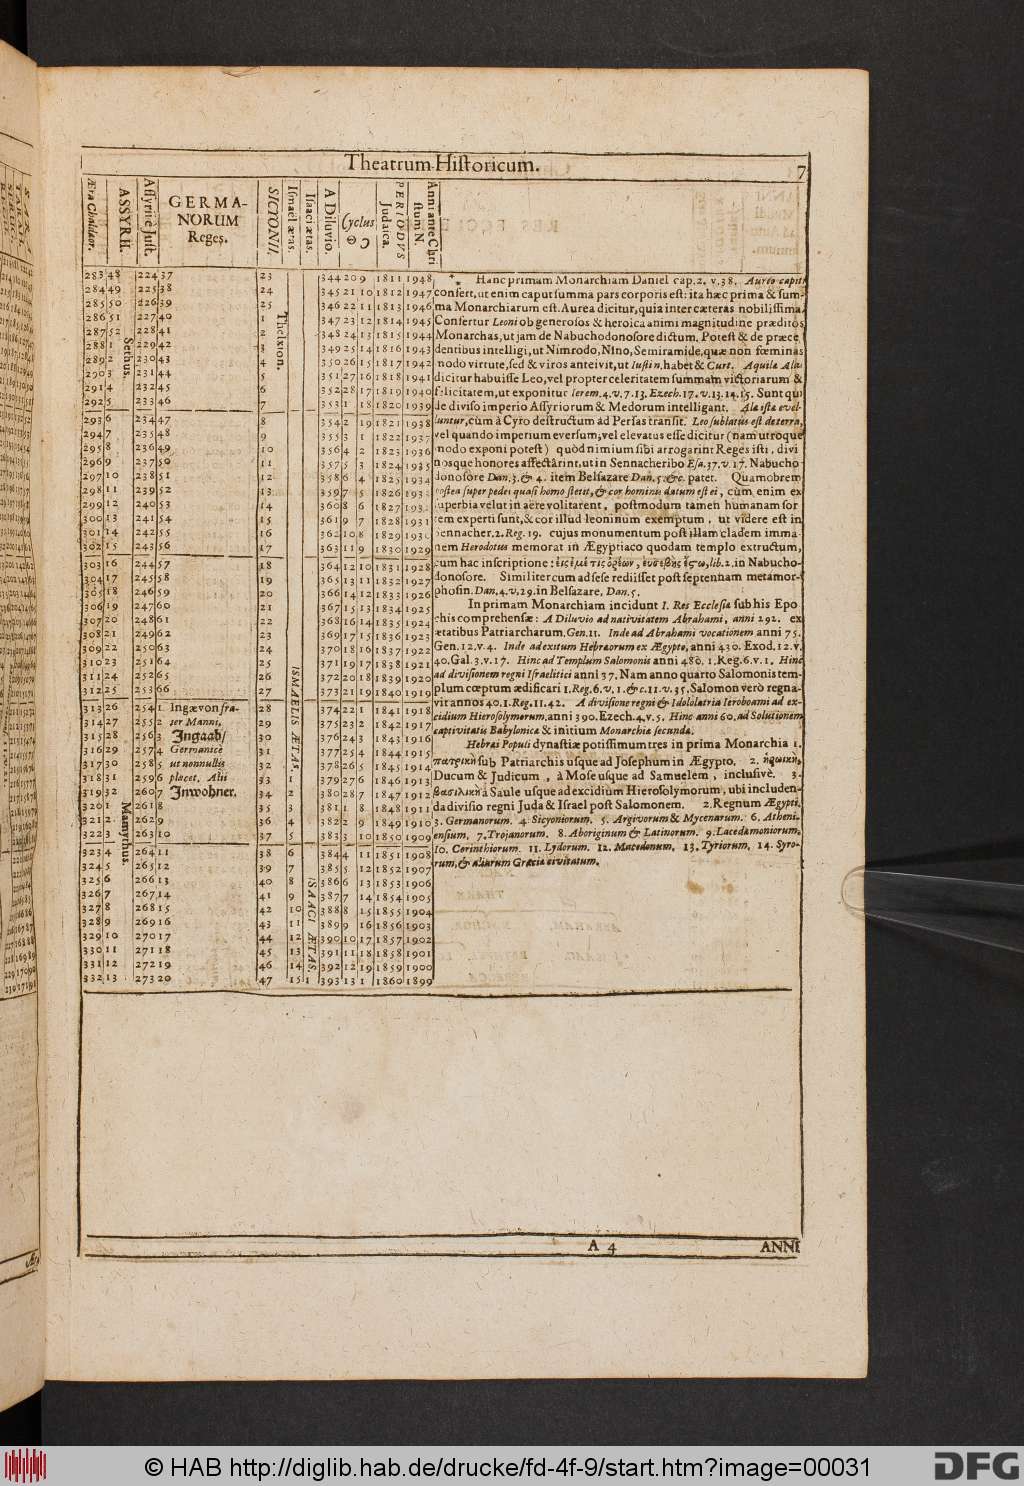 Theatrum Historicum.
7
Æra Chaldæor.
ASSYRII.
Assyriæ Just.
GERMA-
NORUM
Reges.
SICYONII.
Ismael ætas.
Isaaci ætas.
A Diluvio.
Cyclus
☉ ☽
PERIODVS
Judaica.
Anni ante Chri
stum N.
283 48 224 37 23 344 20 9 1811 1948
284 49 225 38 24 345 21 10 1812 1947
285 50 226 39 25 346 22 11 1813 1946
286 51 227 40 1 347 23 12 1814 1945
287 52 228 41 2 348 24 13 1815 1944
288 1 229 42 3 349 25 14 1816 1943
289 2 230 43 4 350 26 15 1817 1942
290 3 231 44 5 351 27 16 1818 1941
291 4 232 45 6 352 28 17 1819 1940
292 5 233 46 7 353 1 18 1820 1939
293 6 234 47 8 354 2 19 1821 1938
294 7 235 48 9 355 3 1 1822 1937
295 8 236 49 10 356 4 2 1823 1936
296 9 237 50 11 357 5 3 1824 1935
297 10 238 51 12 358 6 4 1825 1934
298 11 239 52 13 359 7 5 1826 193
299 12 240 53 14 360 8 6 1827 193
300 13 241 54 15 361 9 7 1828 1931
301 14 242 55 16 362 10 8 1829 193
302 15 243 56 17 363 11 9 1830 1929
303 16 244 57 18 364 12 10 1831 1928
304 17 245 58 19 365 13 11 1832 1927
305 18 246 59 20 366 14 12 1833 1926
306 19 247 60 21 367 15 13 1834 1925
307 20 248 61 22 368 16 14 1835 1924
308 21 249 62 23 369 17 15 1836 1923
309 22 250 63 24 370 18 16 1837 1922
310 23 251 64 25 371 19 17 1838 1921
311 24 252 65 26 372 20 18 1839 1920
312 25 253 66 27 373 21 19 1840 1919
313 26 254 1 Ingævon fra- 28 374 22 1 1841 1918
314 27 255 2 ter Manni, 29 375 23 2 1842 1917
315 28 256 3 Ingaab/ 30 376 24 3 1843 1916
316 29 257 4 Germanicè 31 377 25 4 1844 1915
317 30 258 5 ut nonnullis 32 378 26 5 1845 1914
318 31 259 6 placet. Alii 33 1 379 27 6 1846 1913
319 32 260 7 Inwohner. 34 2 380 28 7 1847 1912
320 1 261 8 35 3 381 1 8 1848 1911
321 2 262 9 36 4 382 2 9 1849 1910
322 3 263 10 37 5 383 3 10 1850 1909
323 4 264 11 38 6 384 4 11 1851 1908
324 5 265 12 39 7 385 5 12 1852 1907
325 6 266 13 40 8 386 6 13 1853 1906
326 7 267 14 41 9 387 7 14 1854 1905
327 8 268 15 42 10 388 8 15 1855 1904
328 9 269 16 43 11 389 9 16 1856 1903
329 10 270 17 44 12 390 10 17 1857 1902
330 11 271 18 45 13 391 11 18 1858 1901
331 12 272 19 46 14 392 12 19 1859 1900
332 13 273 20 47 15 1 393 13 1 1860 1899
Sethus.
Mamythus.
Thelxion.
ISMAELIS ÆTAS.
ISAACI ÆTAS.
* Hanc primam Monarchiam Daniel cap. 2. v. 38. Aureo capiti
confert, ut enim caput summa pars corporis est: ita hæc prima & sum-
ma Monarchiarum est. Aurea dicitur, quia inter cæteras nobilissima.
Confertur Leoni ob generosos & heroica animi magnitudine præditos
Monarchas, ut jam de Nabuchodonosore dictum. Potest & de præce
dentibus intelligi, ut Nimrodo, Nino, Semiramide, quæ non fœminas
modo virtute, sed & viros anteivit, ut Iustin. habet & Curt. Aquilæ Alas
dicitur habuisse Leo, vel propter celeritatem summam victoriarum &
felicitatem, ut exponitur Ierem. 4. v. 7. 13. Ezech. 17. v. 13. 14. 15. Sunt qui
de diviso imperio Assyriorum & Medorum intelligant. Ala ista evel-
luntur, cùm à Cyro destructum ad Persas transit. Leo sublatus est de terra,
vel quando imperium eversum, vel elevatus esse dicitur (nam utroque
modo exponi potest) quòd nimium sibi arrogarint Reges isti, divi
nosque honores affectârint, ut in Sennacheribo Esa. 37. v. 17. Nabucho
donosore Dan. 3. & 4. item Belsazare Dan. 5. &c. patet. Quamobrem
postea super pedes quasi homo stetit, & cor hominis datum est ei, cùm enim ex
superbia velut in aëre volitarent, postmodum tamen humanam sor
tem experti sunt, & cor illud leoninum exemptum, ut videre est in
Sennacher. 2. Reg. 19. cujus monumentum post illam cladem imma-
nem Herodotus memorat in Ægyptiaco quodam templo extructum,
cum hac inscriptione: εἰς ἐμέ τις ὁρέων, ἐυσεβὴς ἔςω, lib. 2. in Nabucho-
donosore. Similiter cum ad sese rediisset post septennam metamor-
phosin. Dan. 4. v. 29. in Belsazare, Dan. 5.
In primam Monarchiam incidunt I. Res Ecclesiæ sub his Epo
chis comprehensæ: A Diluvio ad nativitatem Abrahami, anni 292. ex
ætatibus Patriarcharum. Gen. 11. Inde ad Abrahami vocationem anni 75.
Gen. 12. v. 4. Inde ad exitum Hebræorum ex Ægypto, anni 430. Exod. 12. v.
40. Gal. 3. v. 17. Hinc ad Templum Salomonis anni 480. 1. Reg. 6. v. 1. Hinc
ad divisionem regni Israelitici anni 37. Nam anno quarto Salomonis tem-
plum cœptum ædificari 1. Reg. 6. v. 1. & c. 11. v. 35. Salomon verò regna-
vit annos 40. 1. Reg. 11. 42. A divisione regni & Idololatria Ieroboami ad ex-
cidium Hierosolymorum, anni 390. Ezech. 4. v. 5. Hinc anni 60. ad Solutionem
captivitatis Babylonicæ & initium Monarchiæ secundæ.
Hebræi Populi dynastiæ potissimum tres in prima Monarchia 1.
πατρικὴ sub Patriarchis usque ad Josephum in Ægypto. 2. ἡρωικὴ,
Ducum & Judicum, à Mose usque ad Samuelem, inclusivè. 3.
βασιλικὴ à Saule usque ad excidium Hierosolymorum, ubi includen-
da divisio regni Juda & Israel post Salomonem. 2. Regnum Ægypti,
3. Germanorum. 4. Sicyoniorum, 5. Argivorum & Mycenarum. 6. Atheni-
ensium, 7. Trojanorum. 8. Aboriginum & Latinorum. 9. Lacedæmoniorum.
10. Corinthiorum. 11. Lydorum. 12. Macedonum, 13. Tyriorum, 14. Syro-
rum, & aliarum Græciæ civitatum.
A 4
ANNI
© HAB http://diglib.hab.de/drucke/fd-4f-9/start.htm?image=00031
DFG